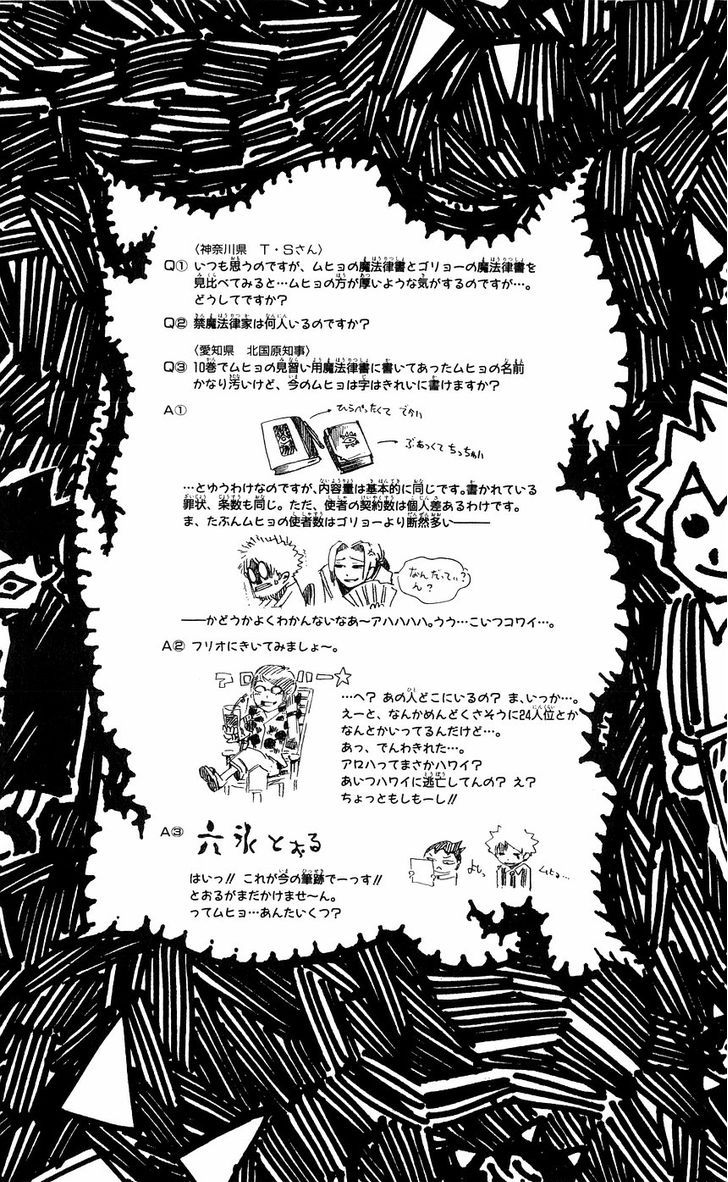 〈神奈川県 T・Sさん〉
Q① いつも思うのですが、ムヒョの魔法律書とゴリョーの魔法律書を
見比べてみると…ムヒョの方が厚いような気がするのですが…。
どうしてですか？
Q② 禁魔法律家は何人いるのですか？
〈愛知県 北国原知事〉
Q③ 10巻でムヒョの見習い用魔法律書に書いてあったムヒョの名前
かなり汚いけど、今のムヒョは字はきれいに書けますか？
A①
ひらべったくて でかい
ぶあつくて ちっちゃい
…とゆうわけなのですが、内容量は基本的に同じです。書かれている
罪状、条数も同じ。ただ、使者の契約数は個人差あるわけです。
ま、たぶんムヒョの使者数はゴリョーより断然多い―――
なんだってい？
ん？
――かどうかよくわかんないなあ〜アハハハハ。うう…こいつコワイ…。
A② フリオにきいてみましょ〜。
アロハー☆
…へ？ あの人どこにいるの？ ま、いっか…。
えーと、なんかめんどくさそうに24人位とか
なんとかいってるんだけど…。
あっ、でんわきれた…。
アロハってまさかハワイ？
あいつハワイに逃亡してんの？ え？
ちょっともしもーし!!
A③ 六氷とおる
よし。
ムヒョ…
はいっ!! これが今の筆跡でーっす!!
とおるがまだかけませ〜ん。
ってムヒョ…あんたいくつ？